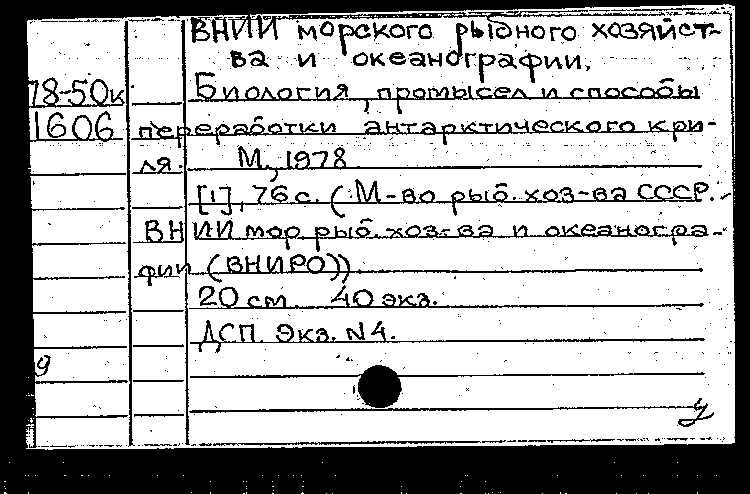 ВНИИ морского рыбного хозяйст-
ва и океанографии.
78-50к Биология, промысел и способы
1606 переработки антарктического кри-
ля. М., 1978.
[1], 76 с. (М-во рыб. хоз-ва СССР.
ВНИИ мор. рыб. хоз-ва и океаногра-
фии (ВНИРО)).
20 см. 40 экз.
ДСП. Экз. N4.
9
у